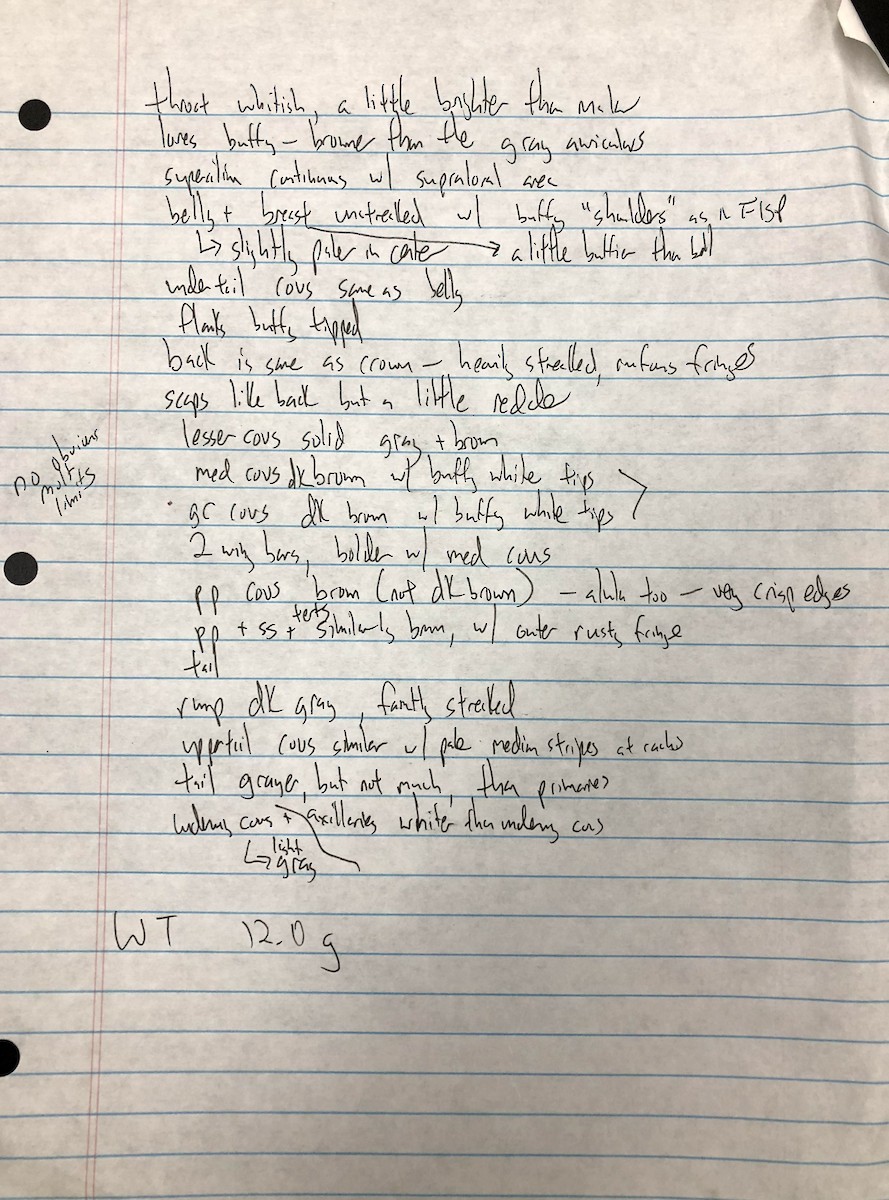 throat whitish, a little brighter than malar
lores buffy – browner than the gray auriculars
supercilium continuous w/ supraloral area
belly + breast unstreaked w/ buffy "shoulders" as in FISP
↳ slightly paler in center → a little buffier than bel
undertail covs same as belly
flanks buffy tipped
back is same as crown – heavily streaked, rufous fringes
scaps like back but a little redder
lesser covs solid gray + brown
no obvious
molt
limits
med covs dk brown w/ buffy white tips
gr covs dk brown w/ buffy white tips
2 wing bars, bolder w/ med covs
pp covs brown (not dk brown) – alula too – very crisp edges
pp + ss + terts similarly brown, w/ outer rusty fringe
tail
rump dk gray, faintly streaked
uppertail covs similar w/ pale medin stripes at rachis
tail grayer, but not much, than primaries
underwing covs + axillaries whiter than underwing covs
↳ light
gray
WT 12.0 g